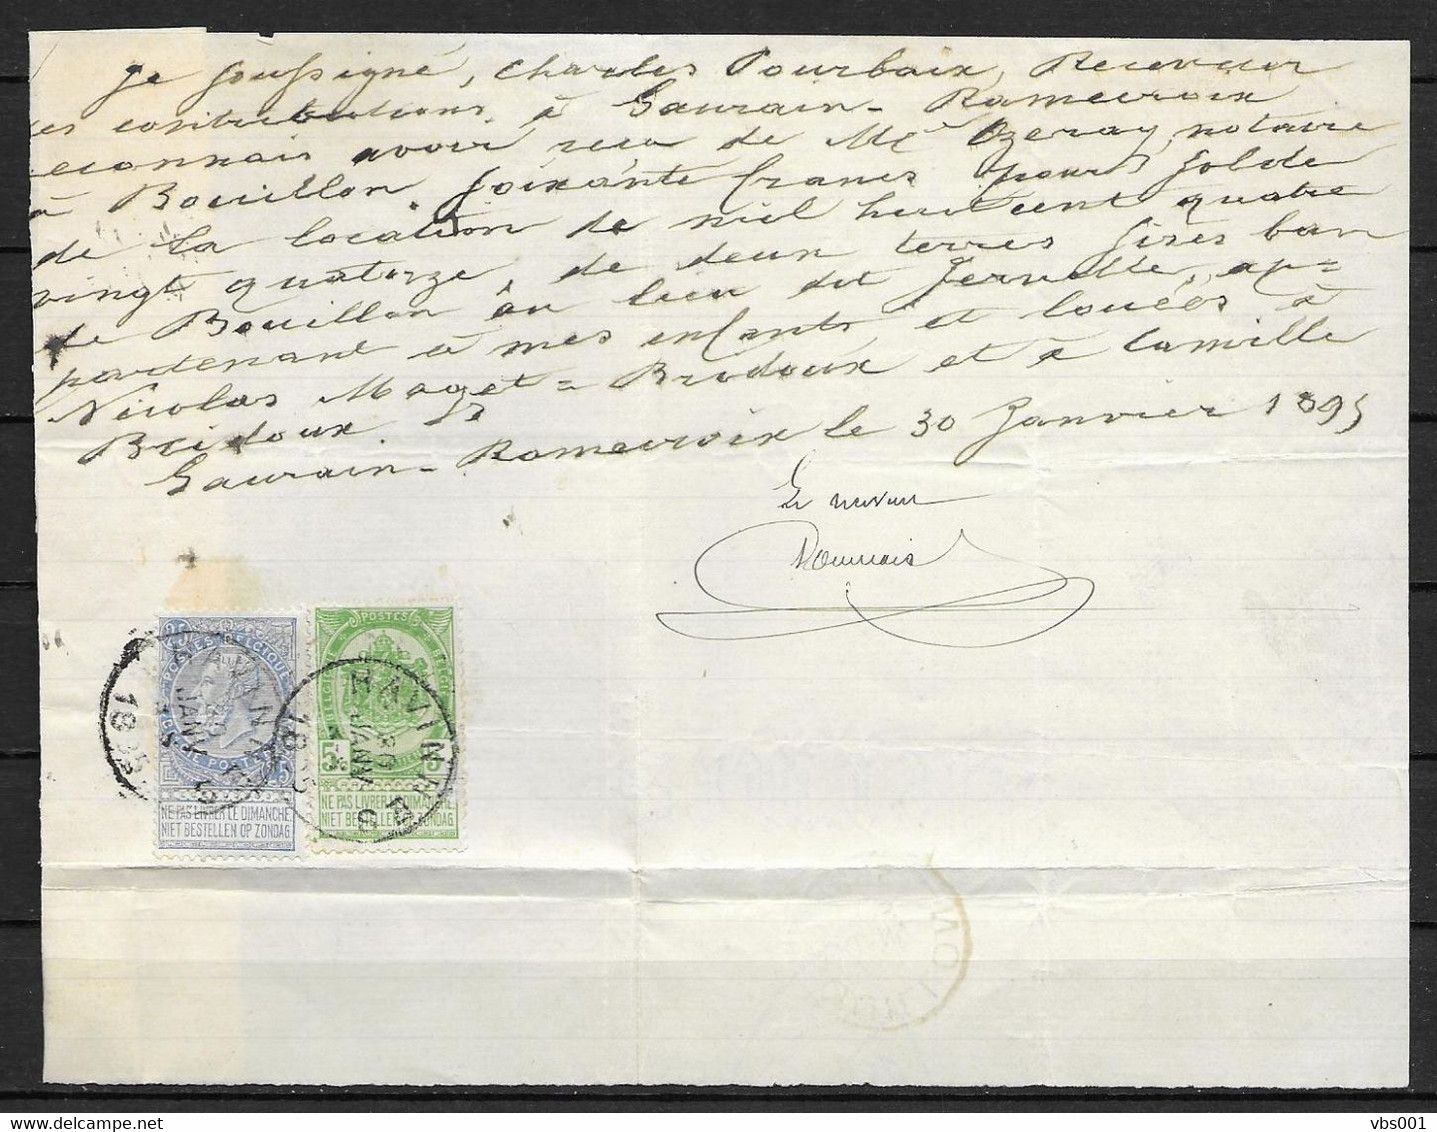 Je soussigné, Charles Pourbaix, Receveur
es contributions, à Gaurain-Ramecroix
econnais avoir recu de Me Ozeray, notaire
à Bouillon, soixante francs pour solde
de la location de mil huit cent quatre
vingt quatorze, de deux terres sises ban
de Bouillon au lieu dit ap=
partenant à mes enfants et louées à
Nicolas Maget = Bridoux et à Camille
Bridoux.
Gaurain-Ramecroix le 30 Janvier 1895
Le receveur
25 POSTES BELGIQUE
NE PAS LIVRER LE DIMANCHE
NIET BESTELLEN OP ZONDAG
POSTES
5 C. 5
NE PAS LIVRER LE DIMANCHE
NIET BESTELLEN OP ZONDAG
HAVINNES
30 JANV
1895
HAVINNES
30 JANV
1895
vbs001